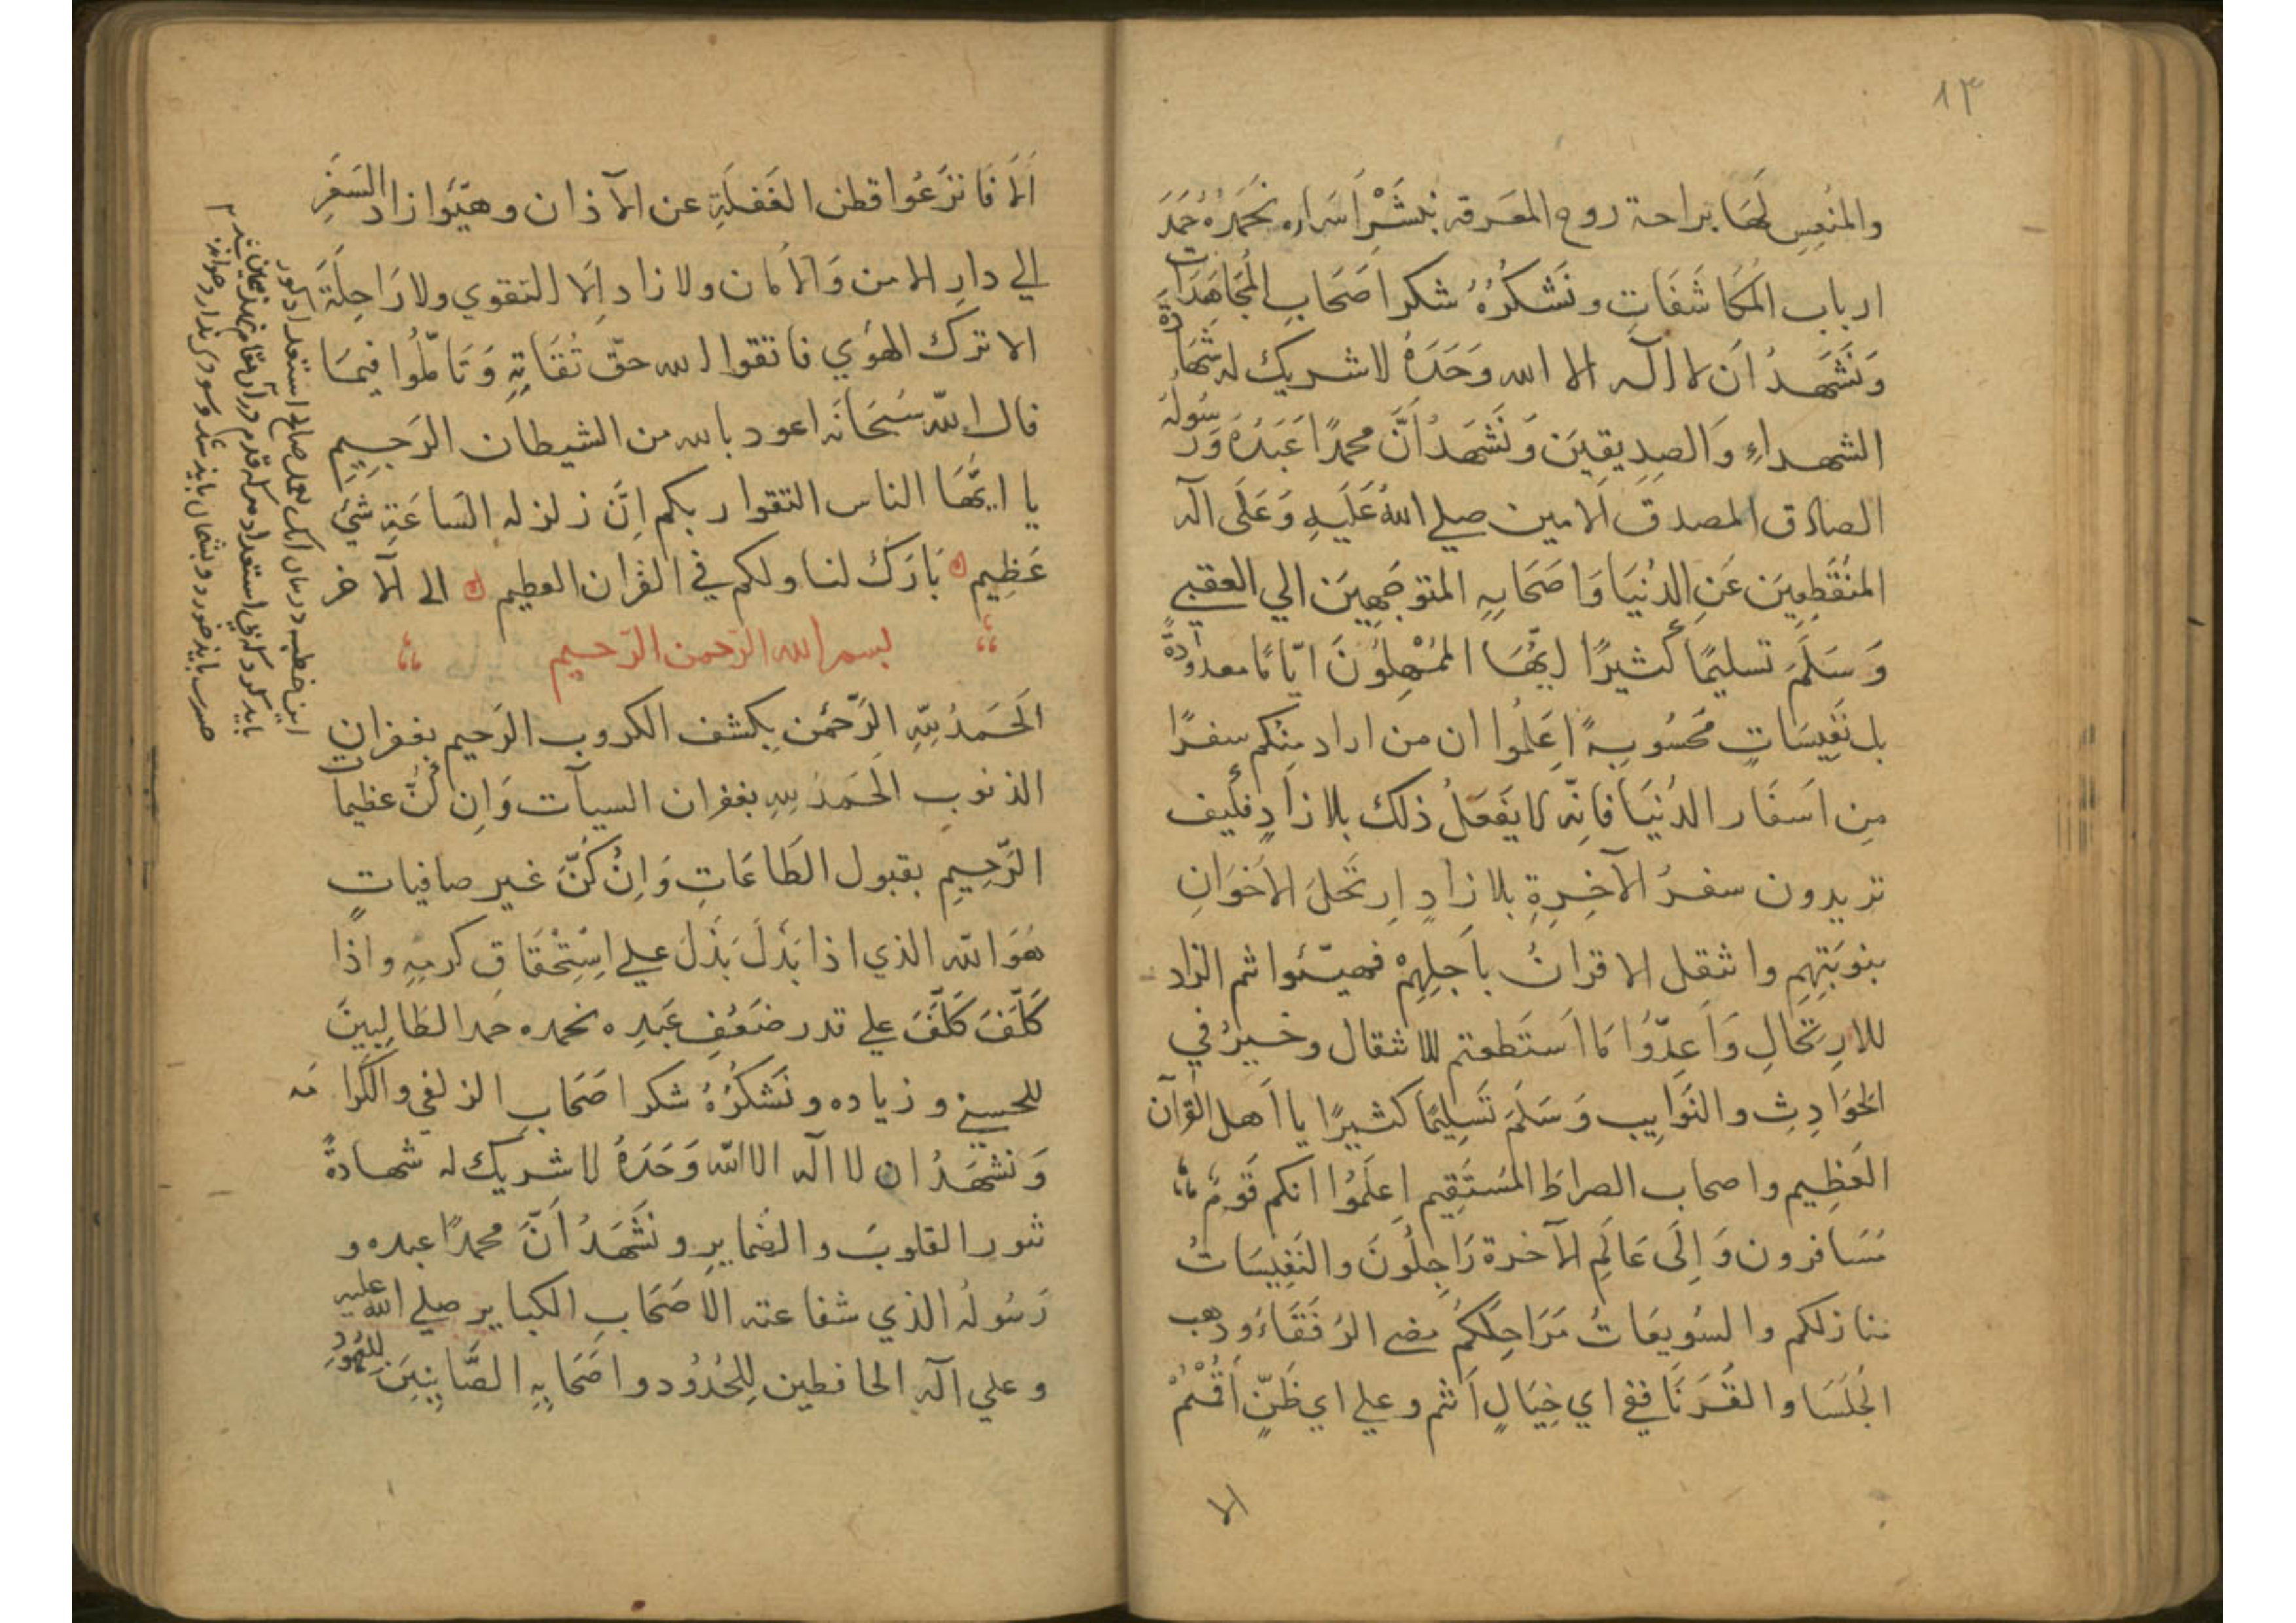 ١٣
والمنعِسِ لَهَا براحة روح المعَرفة بنَشْرِ اَسَراره نَحْمَدُهُ حَمَدَ
ارباب المُكَاشَفَاتِ ونَشكُرُهُ شكر اَصَحَابِ المُجَاهَدَاتِ
وَنَشَهدُ اَن لا اله الا الله وَحَدَهُ لا شريك له شَهَادَةَ
الشهداءِ وَالصِدِيقِيَن وَنَشَهدُ اَنَّ محمدًا عَبَدُهُ وَرَسُولُهُ
الصادق المصدق الامين صلي اللهُ عَلَيهِ وَعَلَى آله
المنَقَطِعِيَن عَنِ الدُنيَا وَاصَحَابِهِ المتوجَهِيَن الي العقبي
وَسَلَمَ تسليمًا كثيرًا ايهَا المُمْهلُوُنَ ايّامًا معدُودَةً
بل نَفِيسَاتٍ مَحُسُوبةً اِعَلمُوا ان من اراد مِنكُم سفرًا
مِن اَسَفَار الدُنيَا فانِه لا يَفَعَلُ ذلك بلا زاَدٍ فكيف
تريدون سفرُ الآخِرِةِ بلا زادٍ اِرتَحَلَ الاخَوَانِ
بنوبَتِهِم واثَقل الاقرانُ باَجلِهِمْ فهيّئوا ثم الزاد
للارِتحَالِ وَاَعِدّوُا مَا اَسَتَطعتم للاثقال وخيرُ في
الحَوَادِثِ والنَوَايِب وَسَلَمَ تَسِليَمًا كثيرًا يا اَهل القرآن
العَظِيم واصحاب الصراطَ المُستَقِيم اِعلَموُا انكم قَومٌ
مُسَافرون وَاِلَى عَالَمِ الآخرة رَاحِلُونَ والنَفِيسَاتُ
منازلكم والسُويعَاتُ مَرَاحِلكُمُ مضي الرُفَقَاءُ وذهب
الجُلَسَا والقُرَنَا ففي اي خِيَالٍ اَنتم وعلي اي ظَنٍّ اَقُمْتُمْ
الا
اَلَمَ فَانزَعُوا قطن الغَفَلَةِ عن الآذان وهيّئوا زاد السَفَرِ
الي دارِ الامن وَالاَمان ولا زاد اِلا التقوي ولا رَاحِلَةَ
الا ترك الهوي فاتقوا الله حقّ تُقَاتِهِ وَتَامّلُوا فِيمَا
قال الله سُبَحَانَه اعوذ بالله من الشيطان الرَجِيمِ
يا ايهَا الناس التقوا ربكم اِنَّ زلزله السَاعَةِ شيٌ
عَظِيم بَارَك لنا ولكم في القران العظيم الى الاخر
بسم الله الرَحمن الرَحيم
الَحَمدُ للهِ الرَحّمن بِكشف الكروب الرَحيم بغفرانِ
الذنوبِ الَحَمدُ للهِ بغفران السيآت وَاِن كُنَّ عظيمات
الرَّحِيمِ بقبول الطَاعَاتِ وَاِنْ كُنَّ غير صافياتٍ
هُوَ الله الذي اذا بَذَلَ بَذَلَ علي اِسْتِحْقَاقِ كرمِهِ واذَا
كَلّفَ كَلَّفَ علي قدر ضَعَفِ عَبَدِه نحمده حمد الطَالِبِينَ
للحسني وزياده ونَشَكُرُهُ شكر اصَحَابِ الزلفي والكرامَه
وَنَشَهَدُ ان لا اله الا الله وَحَدَهُ لا شريك له شهادةً
تنور القلوبَ والضَمايرِ ونَشَهَدُ اَنَّ محمدًا عبده و
رَسُولُه الذي شفاعته الاصَحَابِ الكباير صلي الله عليه
وعلي آله الحافظين لِلحُدُوُد واصَحَابِهِ الصَّاينِيَن للعُهوُدِ
اين خطبه در بيان انك بعمل صالح استعداد
بايد كرد
صبرت بايد خورد وپشيمان بايد شد وسودى ندارد